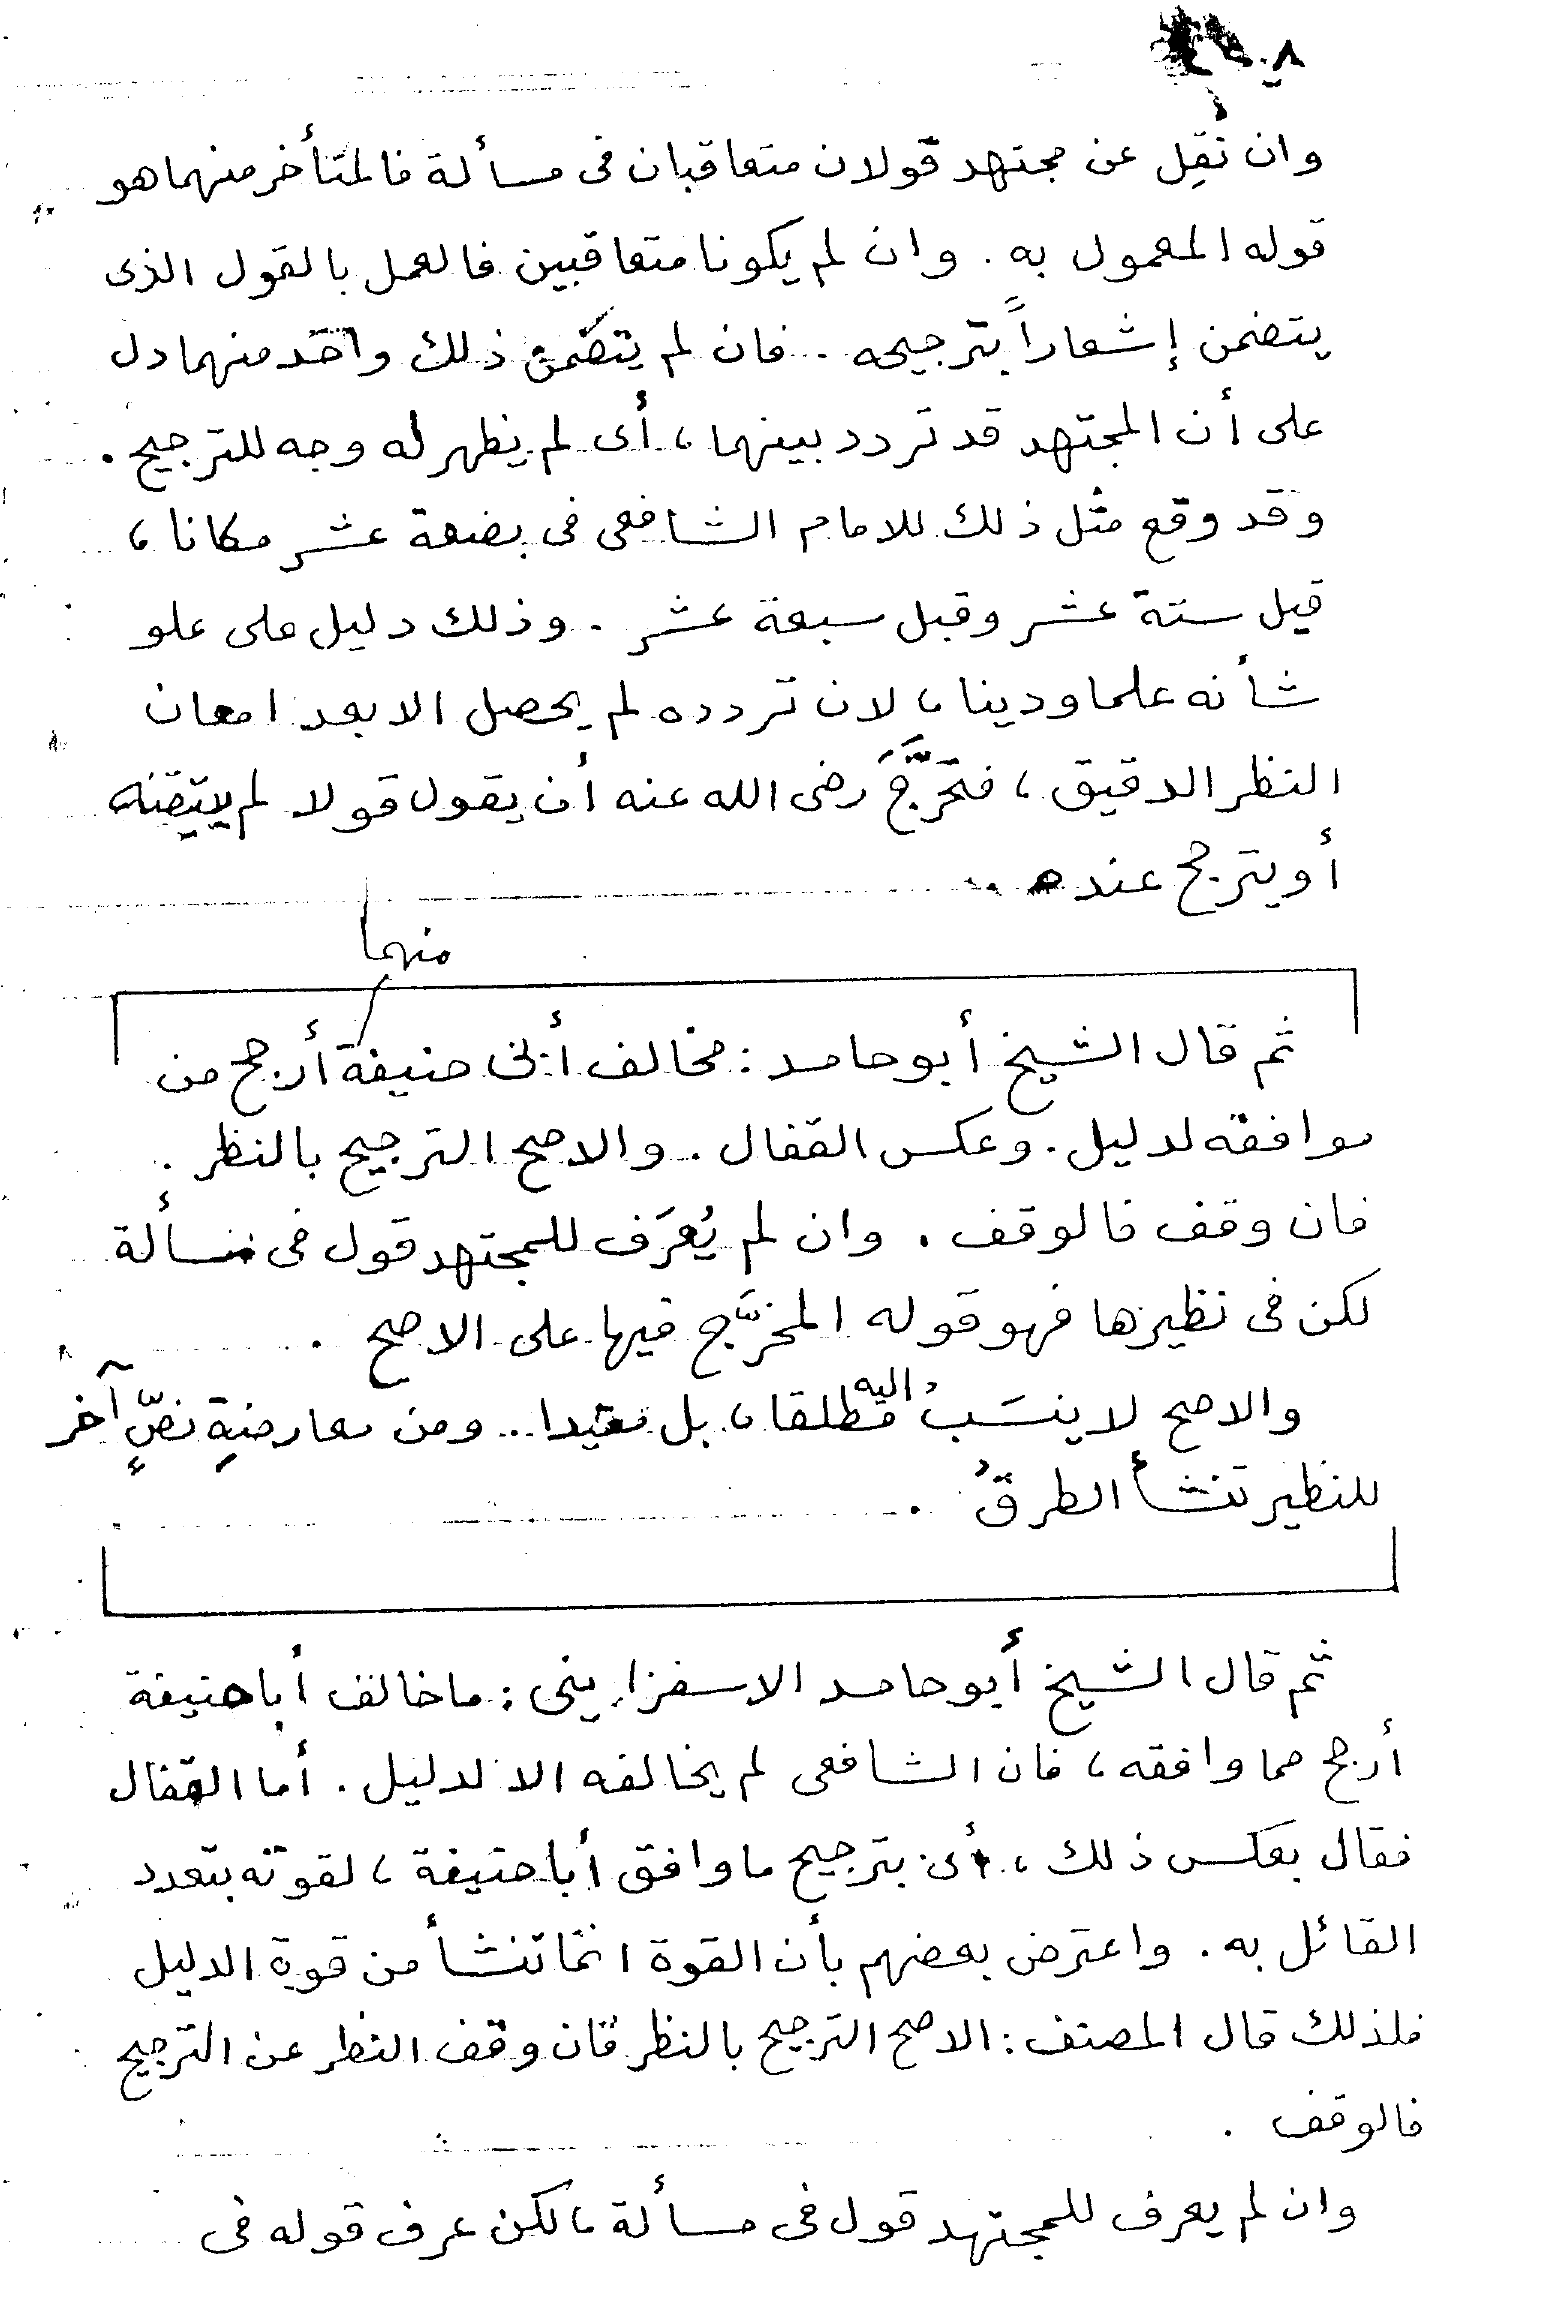 وان نُقِل عن مجتهد قولان متعاقبان فى مسألة فالمتأخر منهما هو
قوله المعمول به . وان لم يكونا متعاقبين فالعمل بالقول الذى
يتضمن إشعاراً بترجيحه . فان لم يتضمن ذلك واحد منهما دل
على أن المجتهد قد تردد بينهما ، أى لم يظهر له وجه للترجيح .
وقد وقع مثل ذلك للامام الشافعى فى بضعة عشر مكانا ،
قيل ستة عشر وقيل سبعة عشر . وذلك دليل على علو
شأنه علما ودينا ، لان تردده لم يحصل الا بعد امعان
النظر الدقيق ، فتحَرَّجَ رضى الله عنه أن يقول قولا لم يتيقنه
أو يترجح عنده ..
منهما
ثم قال الشيخ أبو حامد : مخالف أبى حنيفة أرجح من
موافقه لدليل . وعكس القفال . والاصح الترجيح بالنظر .
فان وقف فالوقف . وان لم يُعرَف للمجتهد قول فى مسألة
لكن فى نظيرها فهو قوله المخرَّج فيها على الاصح .
والاصح لا ينسَبُ اليه مطلقا ، بل مقيدا .. ومن معارضةِ نصٍّ آخر
للنظير تنشأ الطرقُ .
ثم قال الشيخ أبو حامد الاسفرايينى : ما خالف أبا حنيفة
أرجح مما وافقه ، فان الشافعى لم يخالفه الا لدليل . أما القفال
فقال بعكس ذلك ، أى بترجيح ما وافق أبا حنيفة ، لقوته بتعدد
القائل به . واعترض بعضهم بأن القوة انما تنشأ من قوة الدليل
فلذلك قال المصنف : الاصح الترجيح بالنظر فان وقف النظر عن الترجيح
فالوقف .
وان لم يعرف للمجتهد قول فى مسألة ، لكن عرف قوله فى